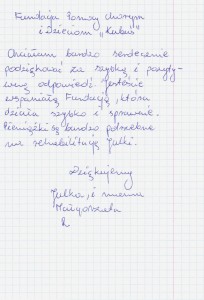 Fundacja Pomocy Chorym
i Dzieciom „Kubuś"
Chciałam bardzo serdecznie
podziękować za szybką i pozyty-
wną odpowiedź. Jesteście
wspaniałą Fundacją, która
działa szybko i sprawnie.
Pieniążki są bardzo potrzebne
na rehabilitację Julki.
Dziękujemy
Julka, i mama
Małgorzata
R